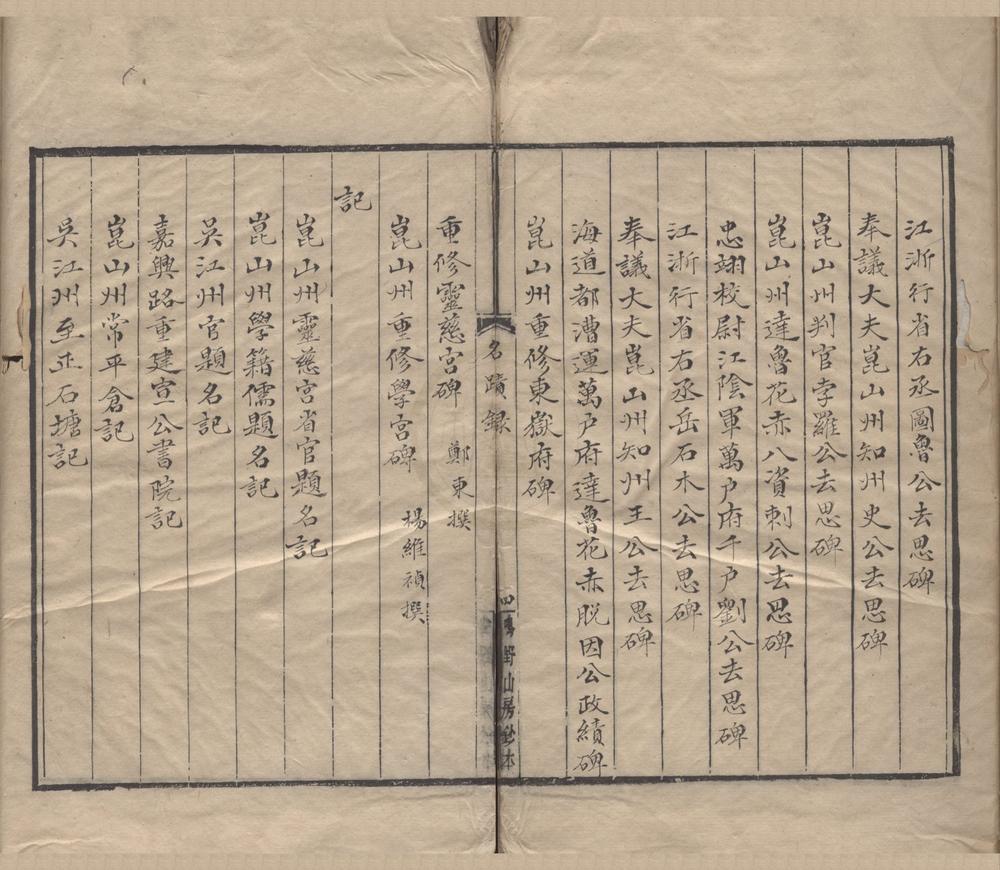 江浙行省右丞圖魯公去思碑
奉議大夫崑山州知州史公去思碑
崑山州判官孛羅公去思碑
崑山州達魯花赤八資剌公去思碑
忠翊校尉江陰軍萬戶府千戶劉公去思碑
江浙行省右丞岳石木公去思碑
奉議大夫崑山州知州王公去思碑
海道都漕運萬戶府達魯花赤脱因公政績碑
崑山州重修東嶽府碑
名蹟錄
四
野山房鈔本
重修靈慈宮碑 鄭東撰
崑山州重修學宮碑 楊維禎撰
記
崑山州靈慈宮省官題名記
崑山州學籍儒題名記
吳江州官題名記
嘉興路重建宣公書院記
崑山州常平倉記
吳江州至正石塘記